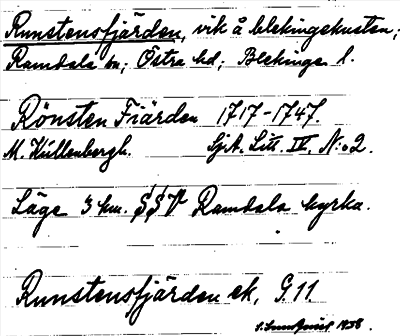 Runstensfjärden, vik å blekingekusten;
Ramdala sn; Östra hd; Blekinge l.
Rönsten Fiärden 1717-1747.
M. Küllenbergh. SjA. Litt. IV. N:o 2.
Läge 3 km. SSV Ramdala kyrka.
Runstensfjärden ek. G. 11.
S. Lundquist 1938.